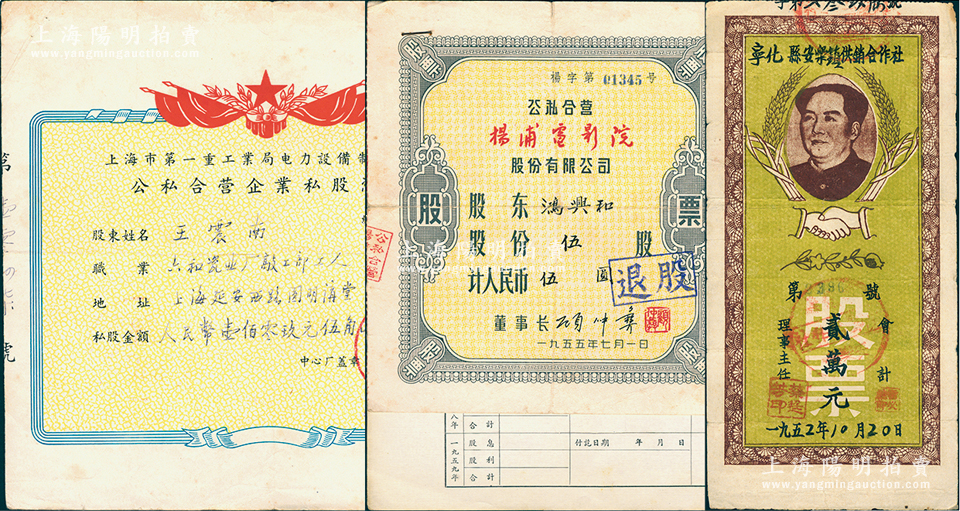 上海陽明拍賣
上海市第一重工業局电力設備制
公私合营企業私股
股東姓名 王震南
職業 六和瓷业厂敲工部工人
地址 上海延安西路
私股金額 人民幣壹佰零玖元伍角
中心厂盖章
第
號
股票
楊字第 01345 号
公私合营
楊浦電影院
股份有限公司
股东 鴻興和
股份 伍 股
計人民币 伍 圓
退股
董事长
一九五五年七月一日
八年 合計
一九五九年 股息 付訖日期 年 月 日
股利
合計
寧化縣安樂鎮供銷合作社
第 號
股票
貳萬元
理事主任
會計
一九五2年10月20日
上海陽明拍賣
www.yangmingauction.com